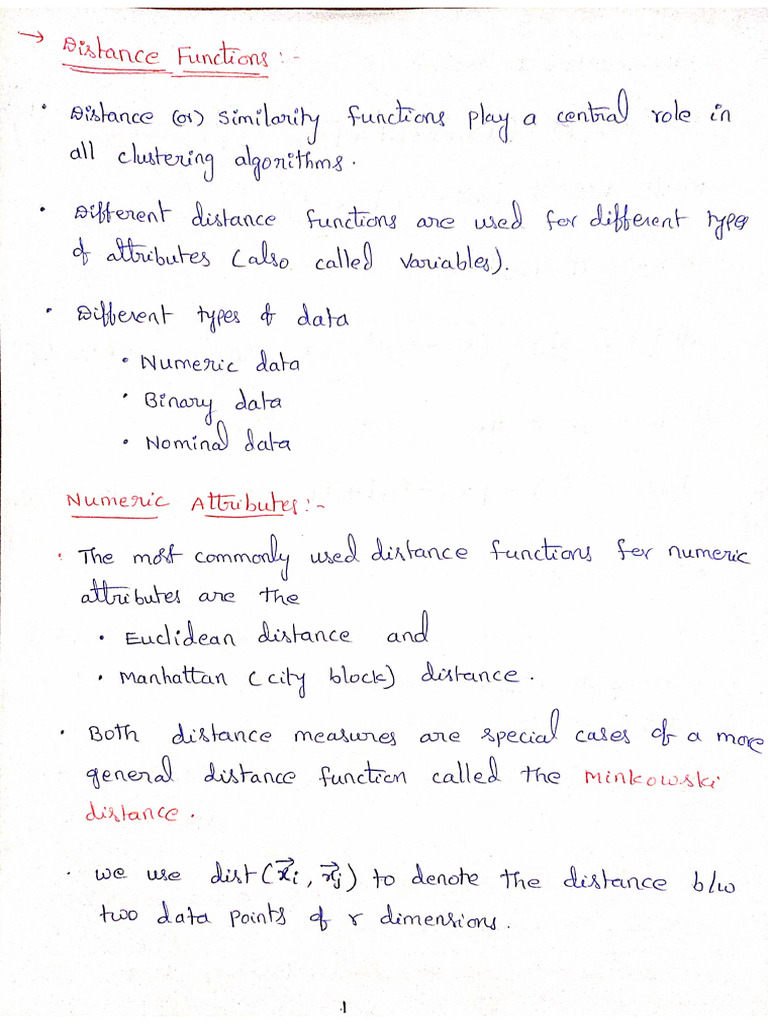 → Distance Functions :-
• Distance (or) Similarity functions play a central role in
all clustering algorithms.
• Different distance functions are used for different types
of attributes (also called variables).
• Different types of data
• Numeric data
• Binary data
• Nominal data
Numeric Attributes :-
• The most commonly used distance functions for numeric
attributes are the
• Euclidean distance and
• Manhattan (city block) distance.
• Both distance measures are special cases of a more
general distance function called the Minkowski
distance.
• we use dist(x⃗i, x⃗j) to denote the distance b/w
two data points of r dimensions.
1